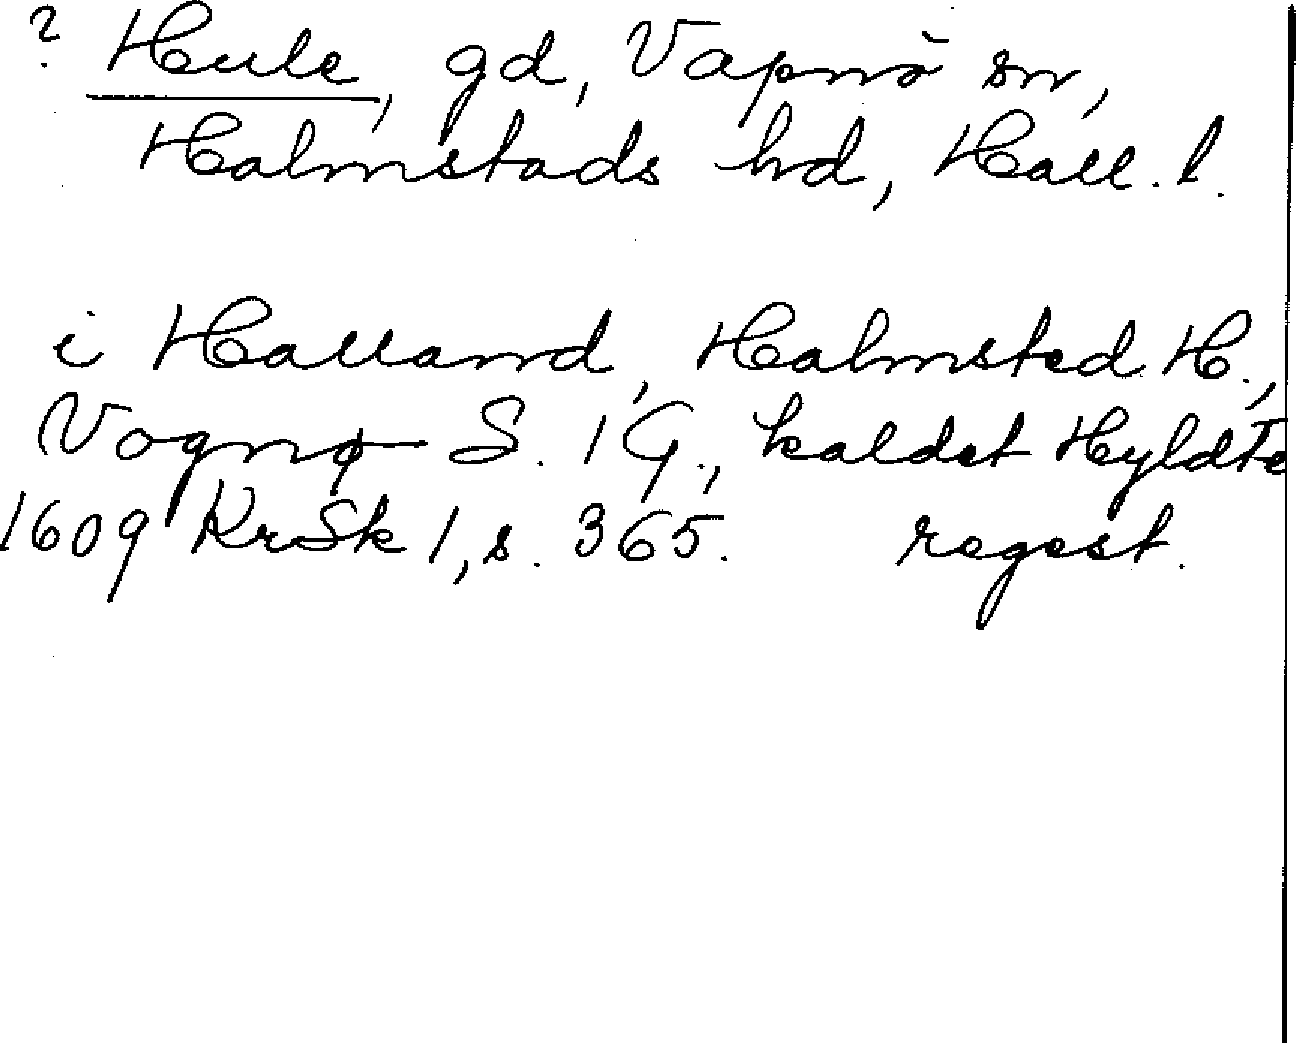 ? Hule, gd, Vapnö sn,
Halmstads hd, Hall. l.
i Halland, Halmsted H.,
Vognø S. 1 G., kaldet Hyldte
1609 KrSk 1, s. 365. regest.